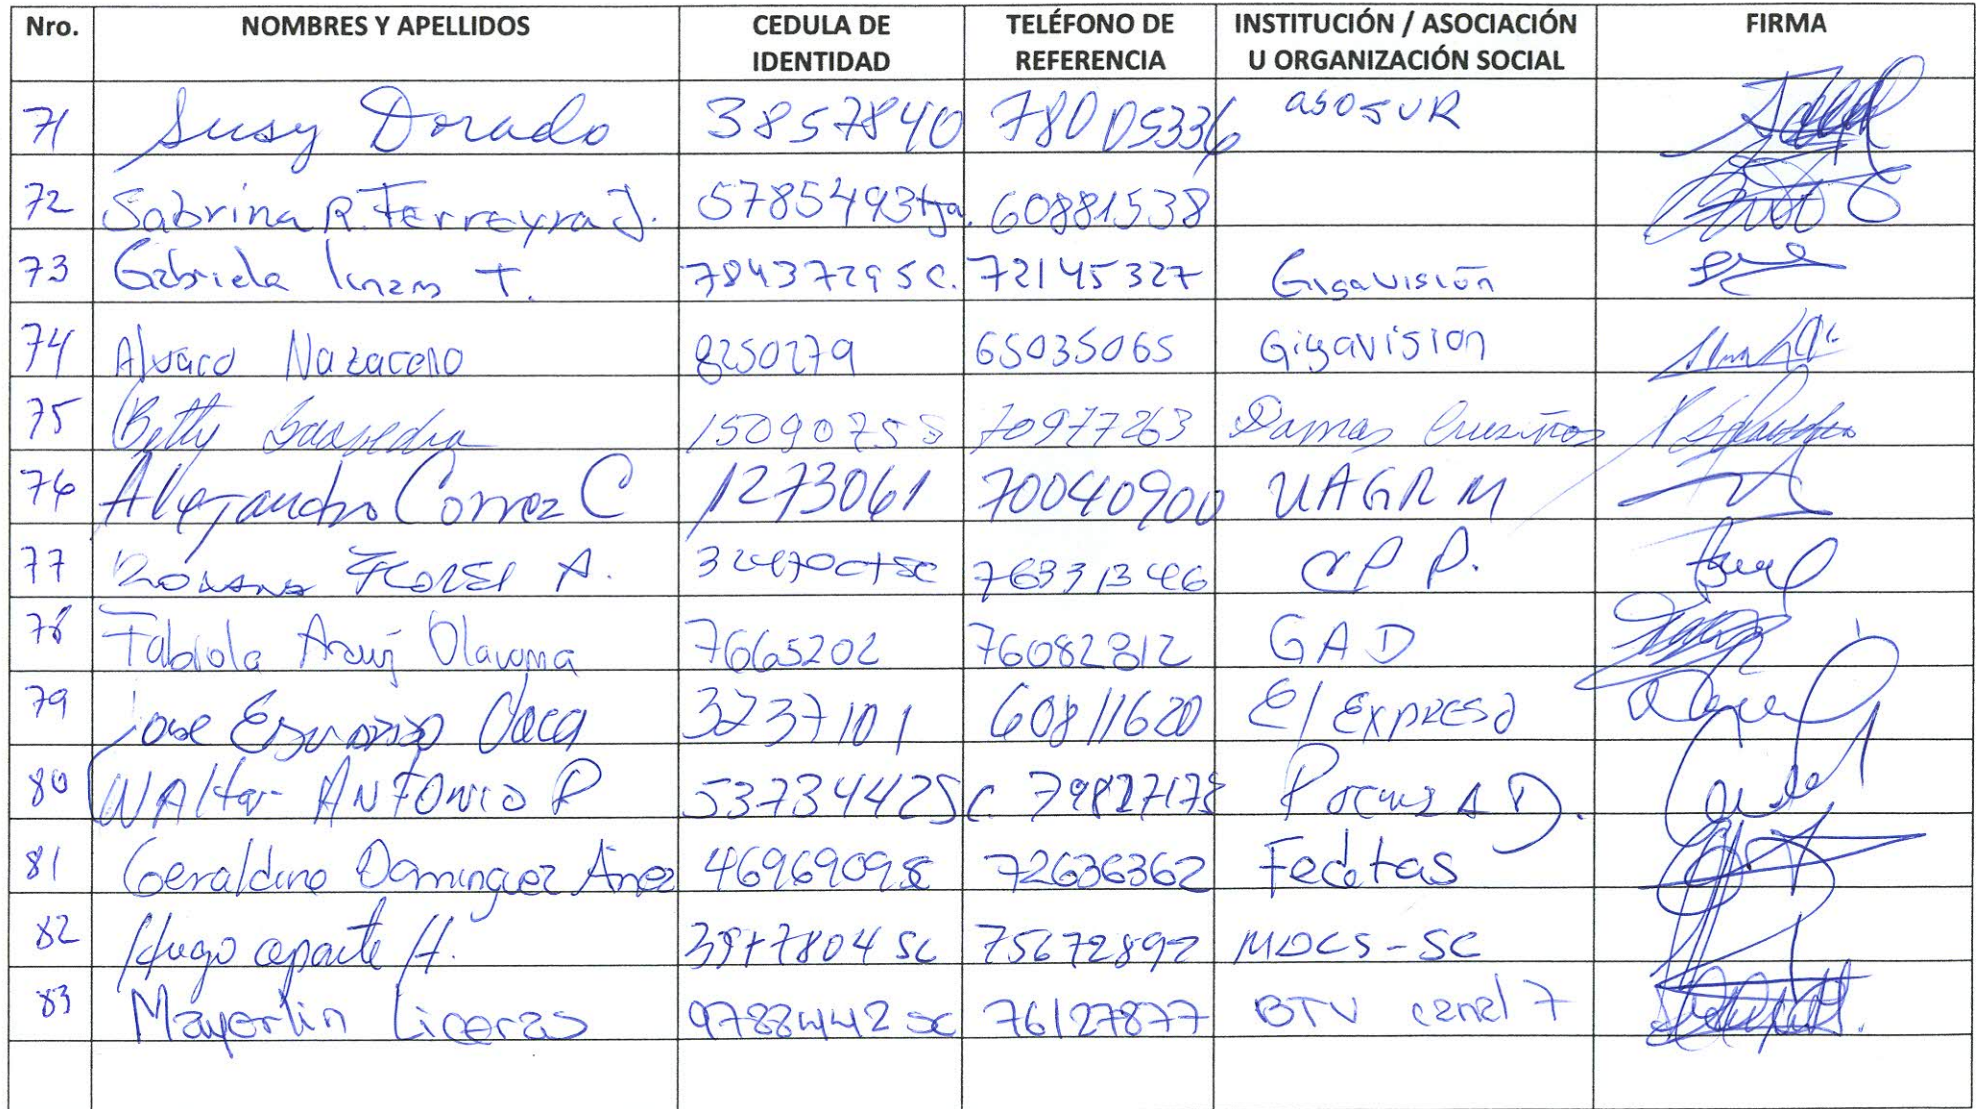 Nro. NOMBRES Y APELLIDOS CEDULA DE IDENTIDAD TELÉFONO DE REFERENCIA INSTITUCIÓN / ASOCIACIÓN U ORGANIZACIÓN SOCIAL FIRMA
71 Susy Dorado 3857840 78005336 ASOSUR
72 Sabrina R. Ferreyra J. 5785493 tja. 60881538
73 Gabriela T. 7843729 SC. 72145327 Gigavisión
74 Alvaro Nazareno 8250279 65035065 Gigavision
75 Betty Saavedra 70977263 Damas Cruceñas
76 Alejandro C 1273061 70040900 UAGRM
77 A. 76331346 P.
78 Fabiola 7665202 76082312 GAD
79 Jose Vaca 3237101 60811620 El EXPRESO
80 WALter ANTONIO P 5373442 SC.
81 Dominguez Añez 4696909 SC 72636362
82 Hugo H. 3977804 SC 75672892 MDCS-SC
83 Mayerlin Liceras 9788442 SC 76127877 BTV canal 7